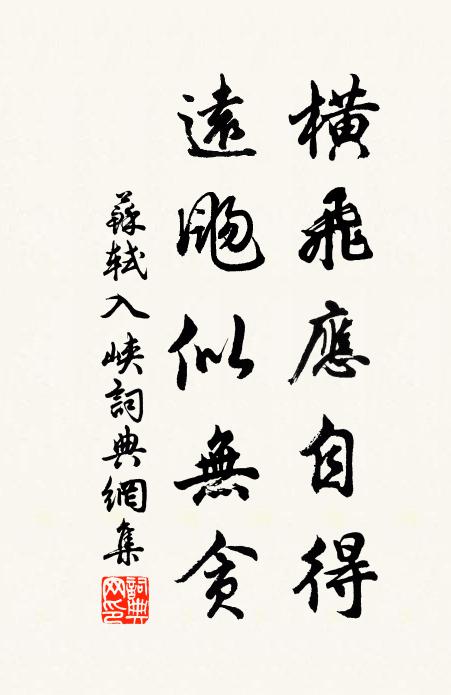 橫飛應自得
遠颺似無貪
蘇軾入峽詞典網集
詞典網印